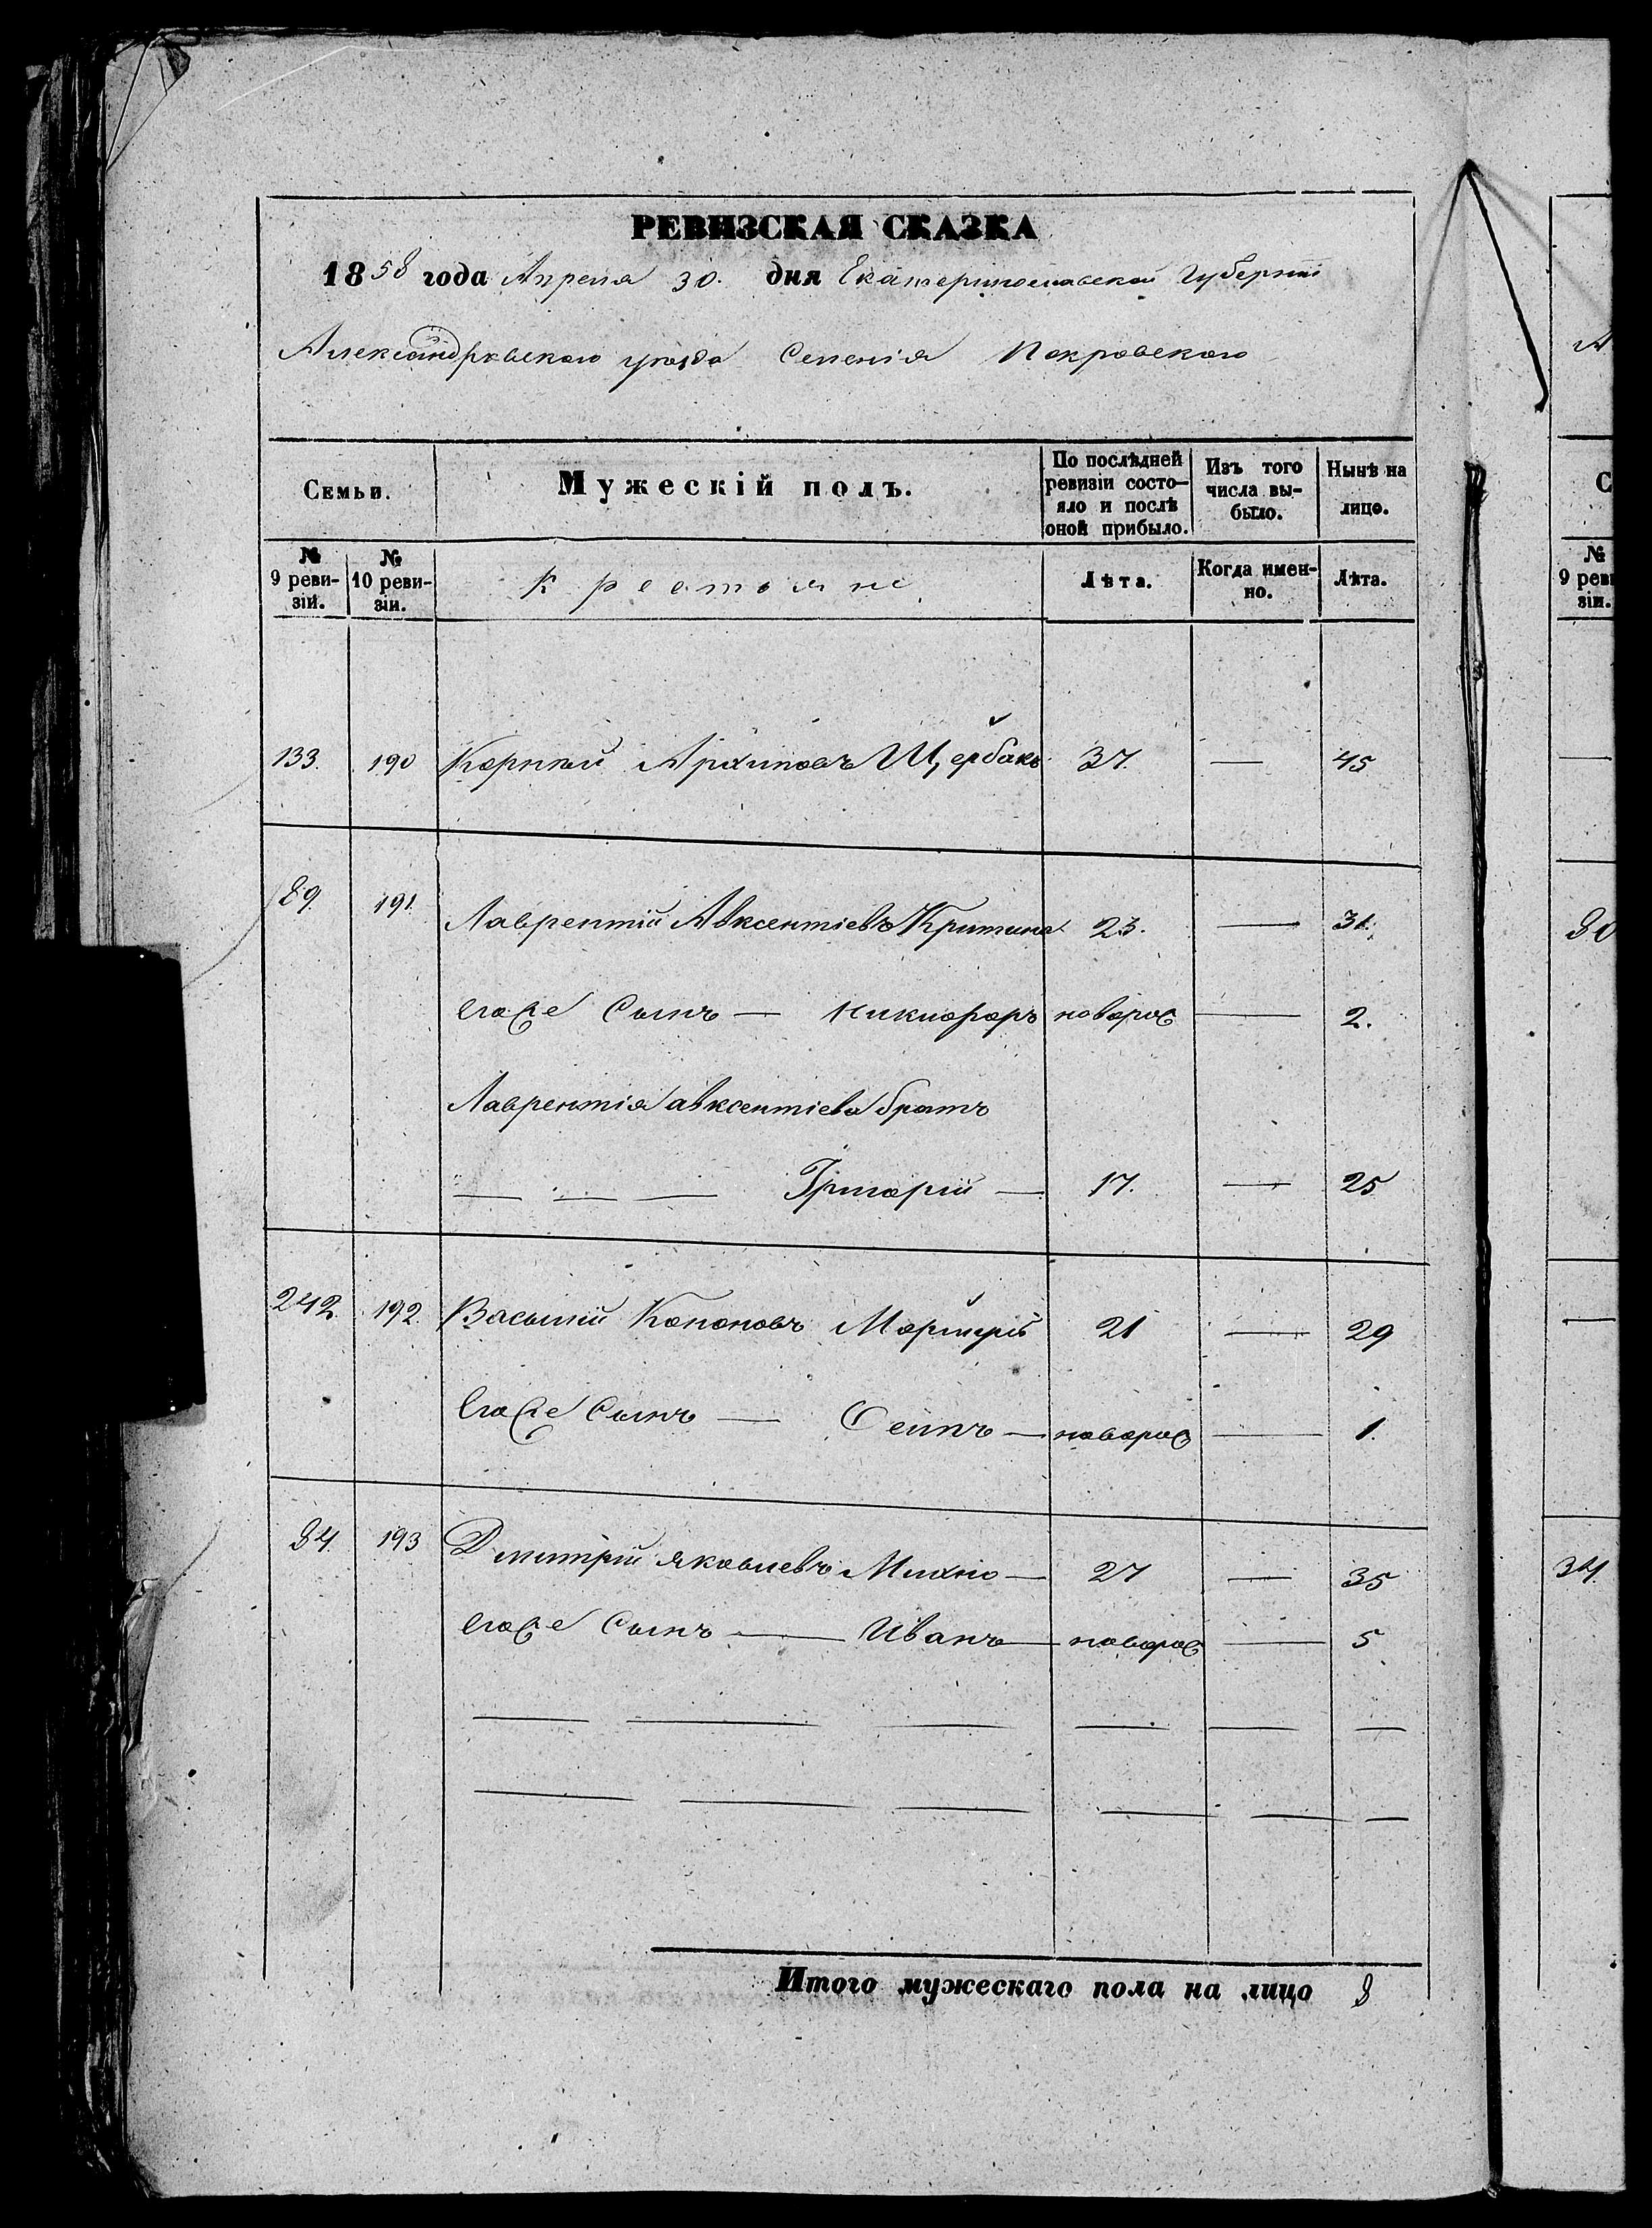 РЕВИЗСКАЯ СКАЗКА
1858 года Апреля 30. дня Екатеринославской Губерніи
Александровского уѣзда Селенія Покровского
Семьи. Мужескій полъ. По послѣдней ревизіи состо- яло и послѣ оной прибыло. Изъ того числа вы- было. Нынѣ на лицо.
№ 9 реви- зіи. № 10 реви- зіи. Крестьяне Лѣта. Когда имен- но. Лѣта.
133. 190 Корнѣй Архиповъ Щербакъ 37. — 45
89. 191. Лаврентій Авксентіевъ 23. — 31.
егоже Сынъ — Никифоръ новорож — 2.
Лаврентія авксентіева братъ
— — — Григорій — 17. — 25
242. 192. Василій Кононовъ 21 — 29
Егоже Сынъ — Осипъ — новорож — 1.
84. 193 Дмитрій Яковлевъ Михно — 27 — 35
егоже Сынъ — Иванъ — новорож — 5
Итого мужескаго пола на лицо 8
А
С
№
9 реви
зіи.
80
34.